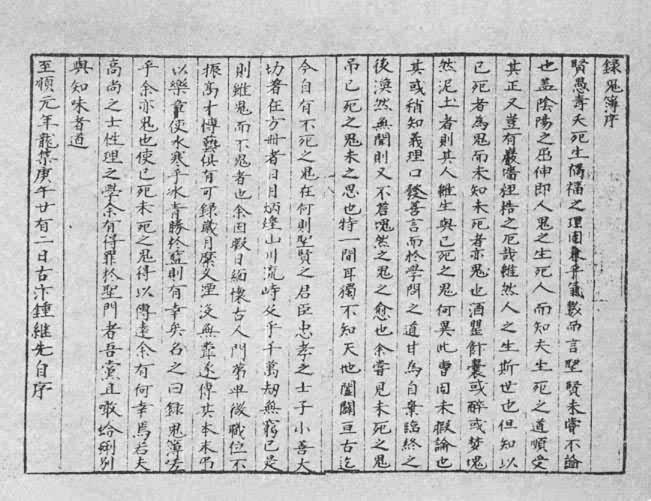 錄鬼簿序
賢愚壽夭死生禍福之理固兼乎氣數而言聖賢未嘗不論
也盖陰陽之屈伸即人鬼之生死人而知夫生死之道順受
其正又豈有巖墻桎梏之厄哉雖然人之生斯世也但知以
已死者為鬼而未知未死者亦鬼也酒罌飰囊或醉或夢塊
然泥土者則其人雖生與已死之鬼何異此曹固未暇論也
其或稍知義理口發善言而於學問之道甘為自棄臨終之
後漠然無聞則又不若塊然之鬼之愈也余嘗見未死之鬼
吊已死之鬼未之思也特一間耳獨不知天地闔闢亘古迄
今自有不死之鬼在何則聖賢之君臣忠孝之士子小善大
功著在方冊者日月炳煌山川流峙及乎千萬劫無窮已是
則雖鬼而不鬼者也余因暇日緬懷古人門第卑微職位不
振髙才博藝俱有可録歲月縻久湮没無聞遂傳其本末吊
以樂章使水寒乎氷青勝於藍則有幸矣名之曰録鬼簿嗟
乎余亦鬼也使已死未死之鬼得以傳遠余有何幸焉若夫
高尚之士性理之學余有得罪於聖門者吾黨且噉蛤蜊別
與知味者道
至順元年龍集庚午廿有二日古汴鍾継先自序